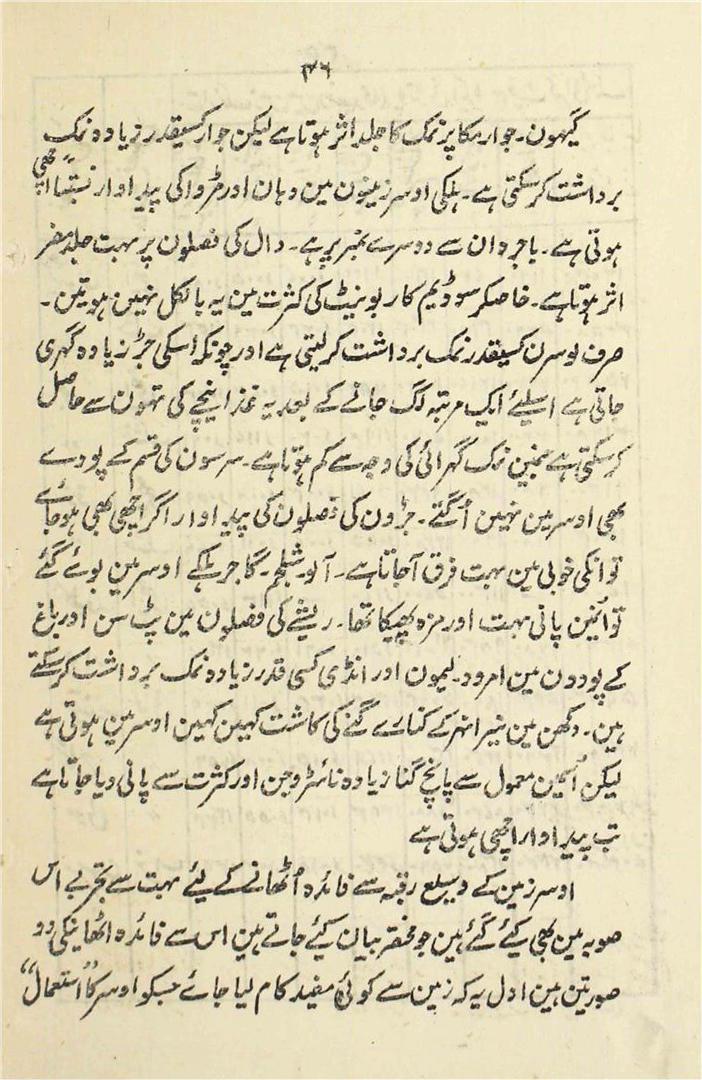 ۳۶
گیہون۔ جوار مکا پر نمک کا جلد اثر ہوتا ہے لیکن جوار کسیقدر زیادہ نمک
برداشت کر سکتی ہے۔ ہلکی اوسر زمینون مین دہان اور مڑوا کی پیداوار نسبتاً اچھی
ہوتی ہے۔ باجرہ ان سے دوسرے نمبر پر ہے۔ دال کی فصلون پر بہت جلد مضر
اثر ہوتا ہے۔ خاصکر سوڈیم کاربونیٹ کی کثرت مین یہ بالکل نہین ہوتین۔
صرف لوسرن کسیقدر نمک برداشت کر لیتی ہے اور چونکہ اسکی جڑ زیادہ گہری
جاتی ہے اسلیئے ایک مرتبہ لگ جانے کے بعد یہ غذا نیچے کی تہون سے حاصل
کر سکتی ہے جنمین نمک گہرائی کی وجہ سے کم ہوتا ہے۔ سرسون کی قسم کے پودے
بھی اوسر مین نہین اُگتے۔ جڑون کی فصلون کی پیداوار اگر اچھی بھی ہو جائے
تو انکی خوبی مین بہت فرق آجاتا ہے۔ آلو۔ شلجم۔ گاجر ہلکے اوسر مین بوئے گئے
تو اُنمین پانی بہت اور مزہ پھیکا تھا۔ ریشے کی فصلون مین پٹ سن اور باغ
کے پودون مین امرود۔ لیمون اور انڈی کسی قدر زیادہ نمک برداشت کر سکتے
ہین۔ دکھن مین نیرا نہر کے کنارے گنے کی کاشت کہین کہین اوسر مین ہوتی ہے
لیکن اُسمین معمول سے پانچ گنا زیادہ نائٹروجن اور کثرت سے پانی دیا جاتا ہے
تب پیداوار اچھی ہوتی ہے
اوسر زمین کے وسیع رقبہ سے فائدہ اُٹھانے کے لیئے بہت سے تجربے اس
صوبہ مین بھی کیئے گئے ہین جو مختصر بیان کیئے جاتے ہین اس سے فائدہ اٹھانیکی دو
صورتین ہین اول یہ کہ زمین سے کوئی مفید کام لیا جائے جسکو اوسر کا ”استعمال“